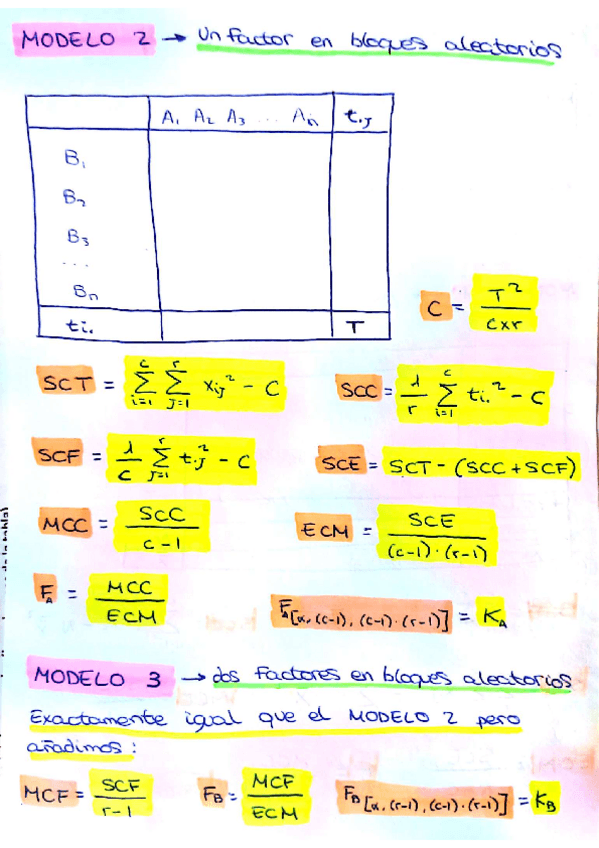 MODELO 2 → Un factor en bloques aleatorios
A₁ A₂ A₃ ... Aₙ t.ⱼ
B₁
B₂
B₃
...
Bₙ
tᵢ. T
C = T² / c×r
SCT = Σᵢ₌₁ᶜ Σⱼ₌₁ʳ xᵢⱼ² - C
SCC = 1/r Σᵢ₌₁ᶜ tᵢ.² - C
SCF = 1/c Σⱼ₌₁ʳ t.ⱼ² - C
SCE = SCT - (SCC + SCF)
MCC = SCC / c-1
ECM = SCE / (c-1)·(r-1)
F_A = MCC / ECM
F_A[α, (c-1), (c-1)·(r-1)] = K_A
MODELO 3 → dos factores en bloques aleatorios
Exactamente igual que el MODELO 2 pero
añadimos:
MCF = SCF / r-1
F_B = MCF / ECM
F_B[α, (r-1), (c-1)·(r-1)] = K_B